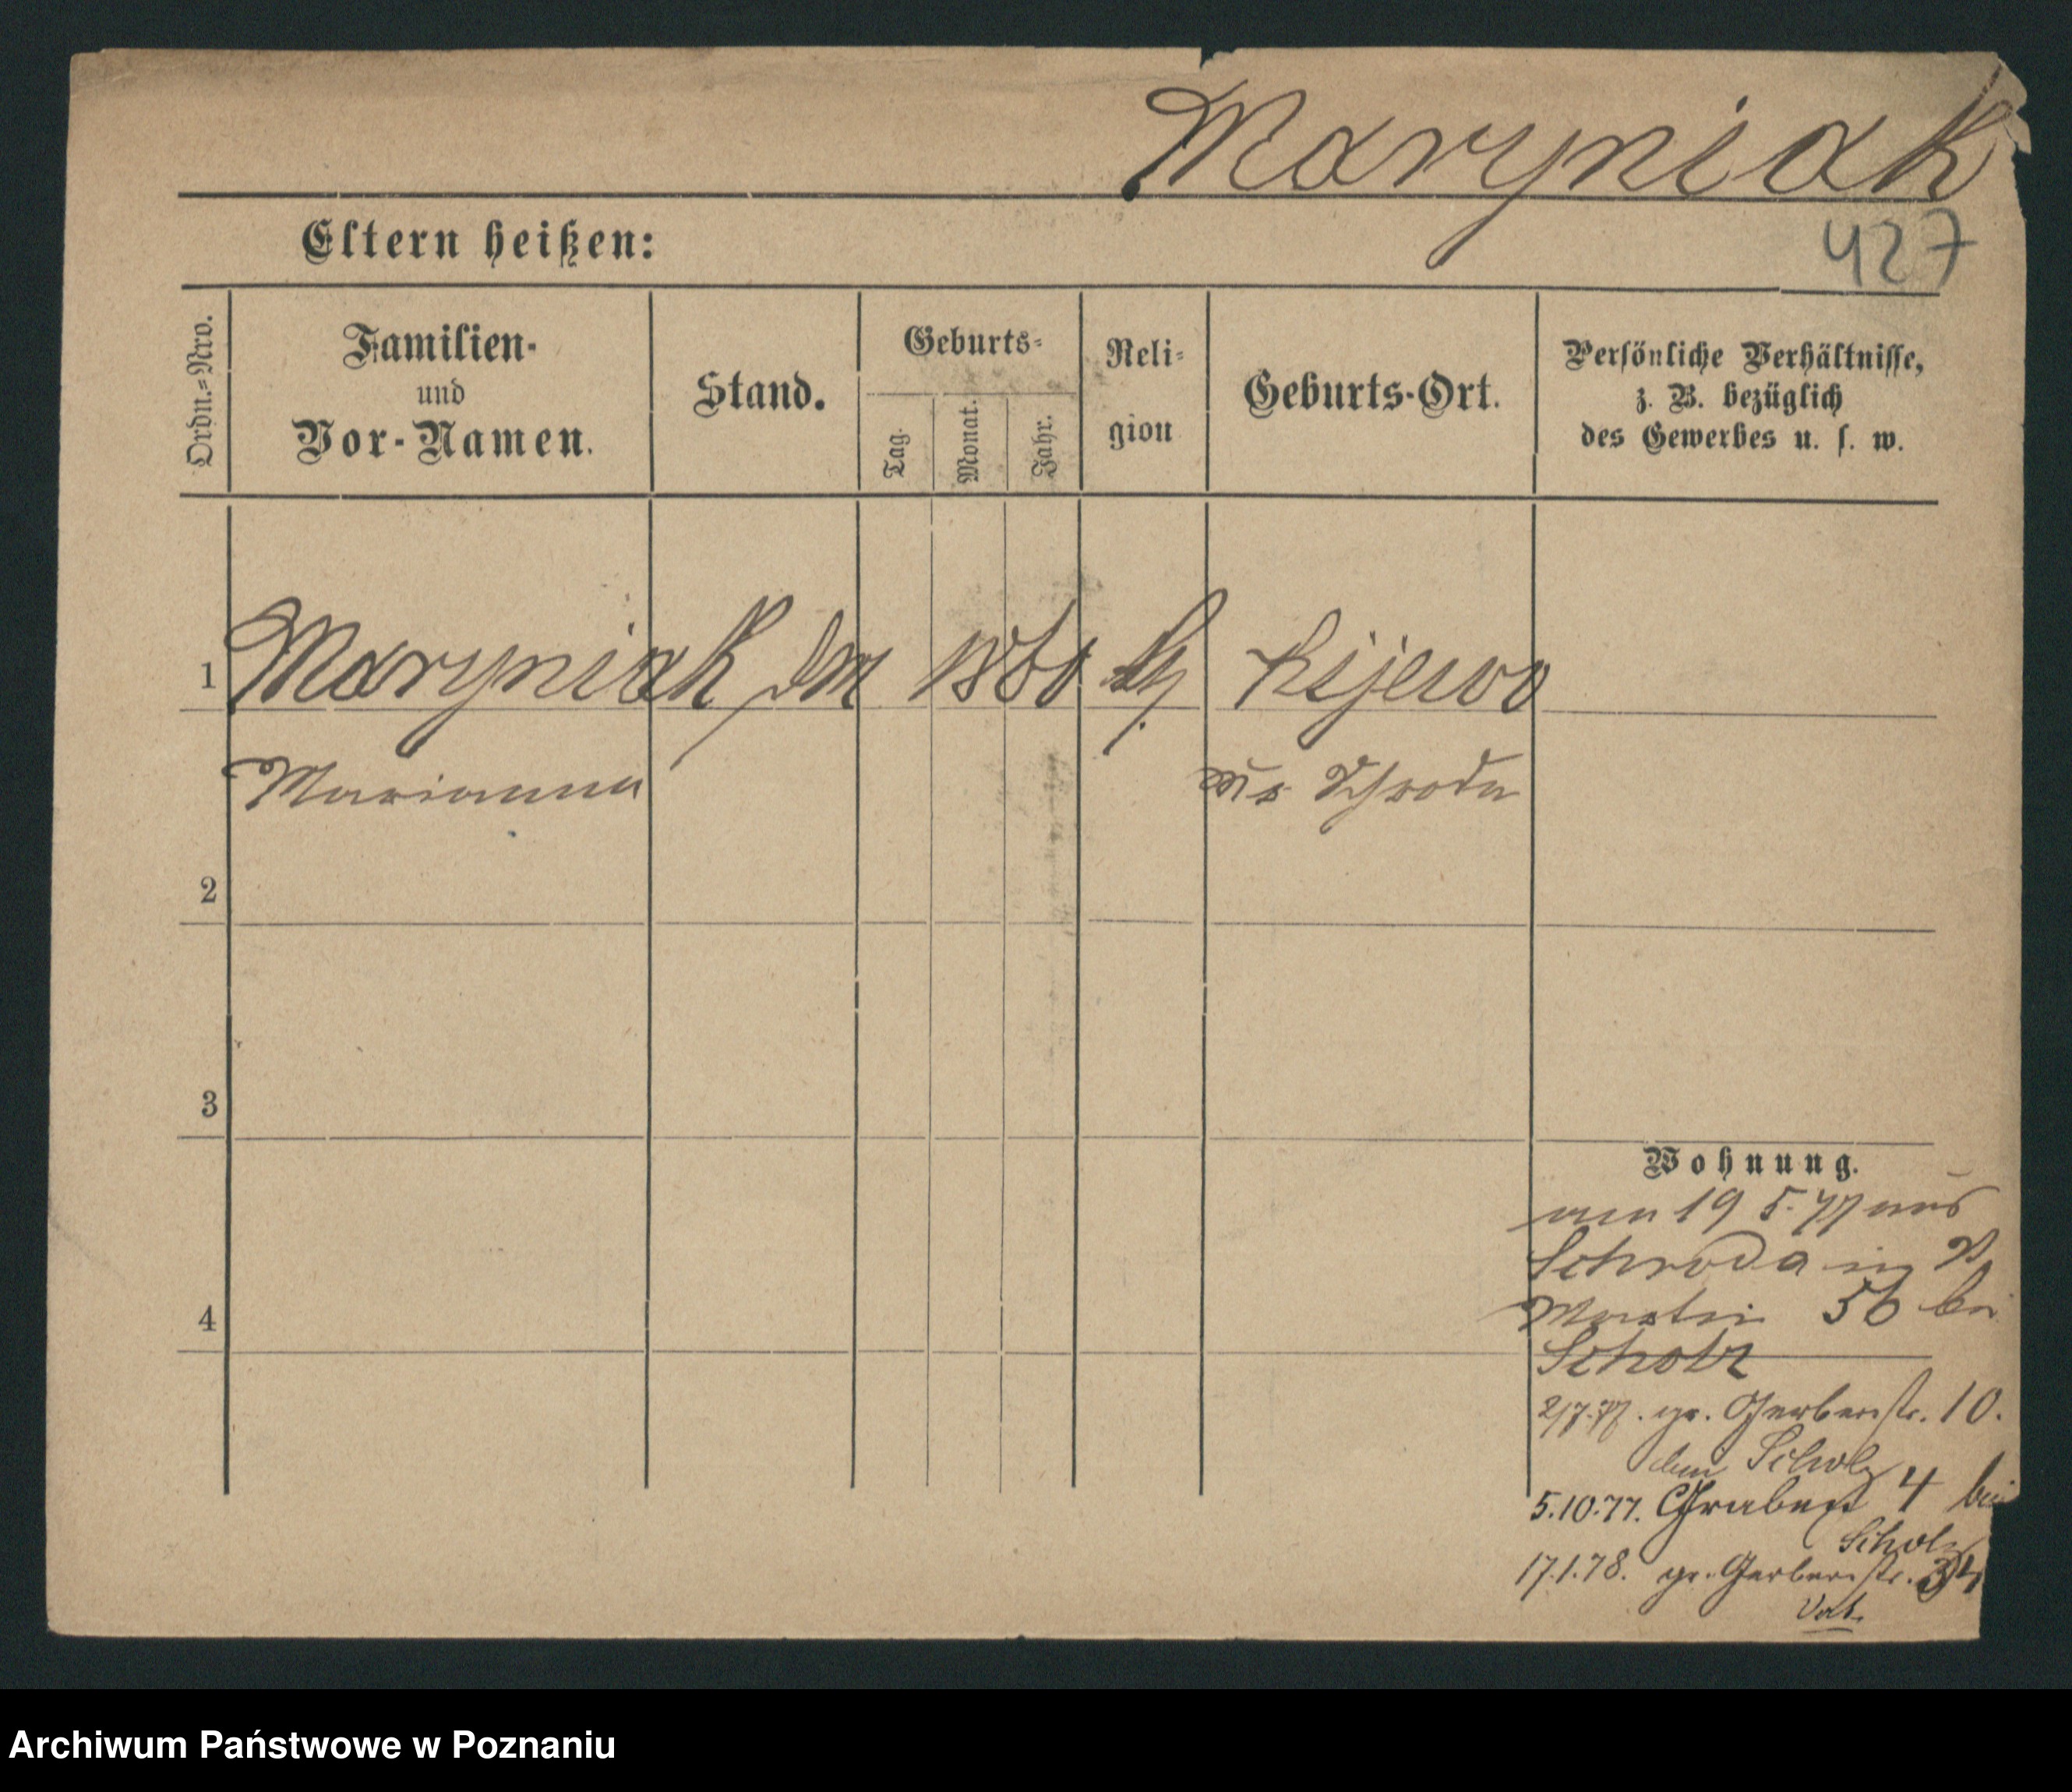 Maryniak
427
Eltern heißen:
Ordn.=Nro.
Familien-
und
Vor-Namen.
Stand.
Geburts=
Tag.
Monat.
Jahr.
Reli=
gion
Geburts-Ort.
Persönliche Verhältnisse,
z. B. bezüglich
des Gewerbes u. s. w.
1 Maryniak 1860 Kijewo
Marianna Schroda
2
3
Wohnung.
am 19 5. 77 aus
Schroda in P
4
Martin 56 bei
Scholz
2/7.77. gr. Gerberstr. 10.
Scholz
5.10.77. Graben 4 bei
Scholz
17.1.78. gr. Gerberstr. 34
Archiwum Państwowe w Poznaniu